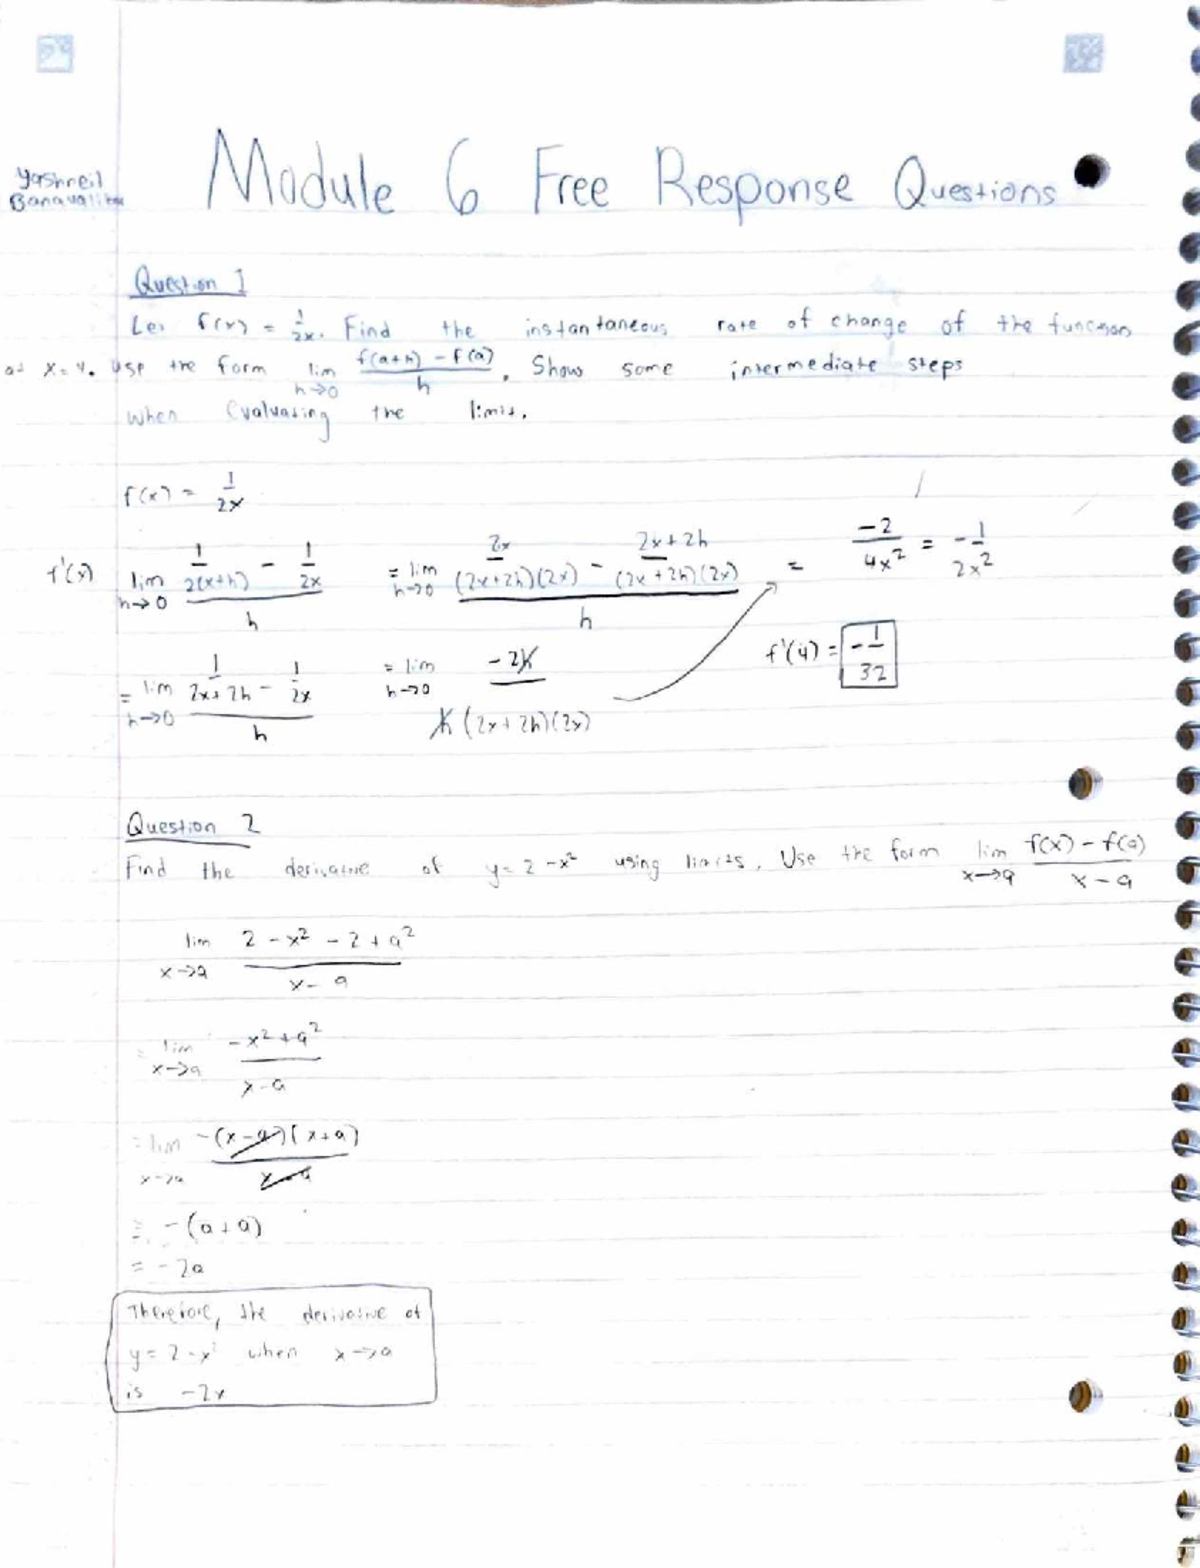 Module 6 Free Response Questions
Yashneil
Question 1
Let f(x) = 1/2x. Find the instantaneous rate of change of the function
at x=4. Use the form lim h→0 (f(a+h) - f(a))/h. Show some intermediate steps
when evaluating the limit.
f(x) = 1/2x
f'(x) lim h→0 (1/2(x+h) - 1/2x)/h = lim h→0 (2x/(2x+2h)(2x) - 2x+2h/(2x+2h)(2x))/h = -2/4x² = -1/2x²
= lim h→0 (1/2x+2h - 1/2x)/h = lim h→0 -2h/h(2x+2h)(2x) f'(4) = -1/32
Question 2
Find the derivative of y=2-x² using limits. Use the form lim x→a (f(x)-f(a))/(x-a)
lim x→a (2-x²-2+a²)/(x-a)
= lim x→a (-x²+a²)/(x-a)
= lim x→a -(x-a)(x+a)/(x-a)
= -(a+a)
= -2a
Therefore, the derivative of
y=2-x² when x→a
is -2x